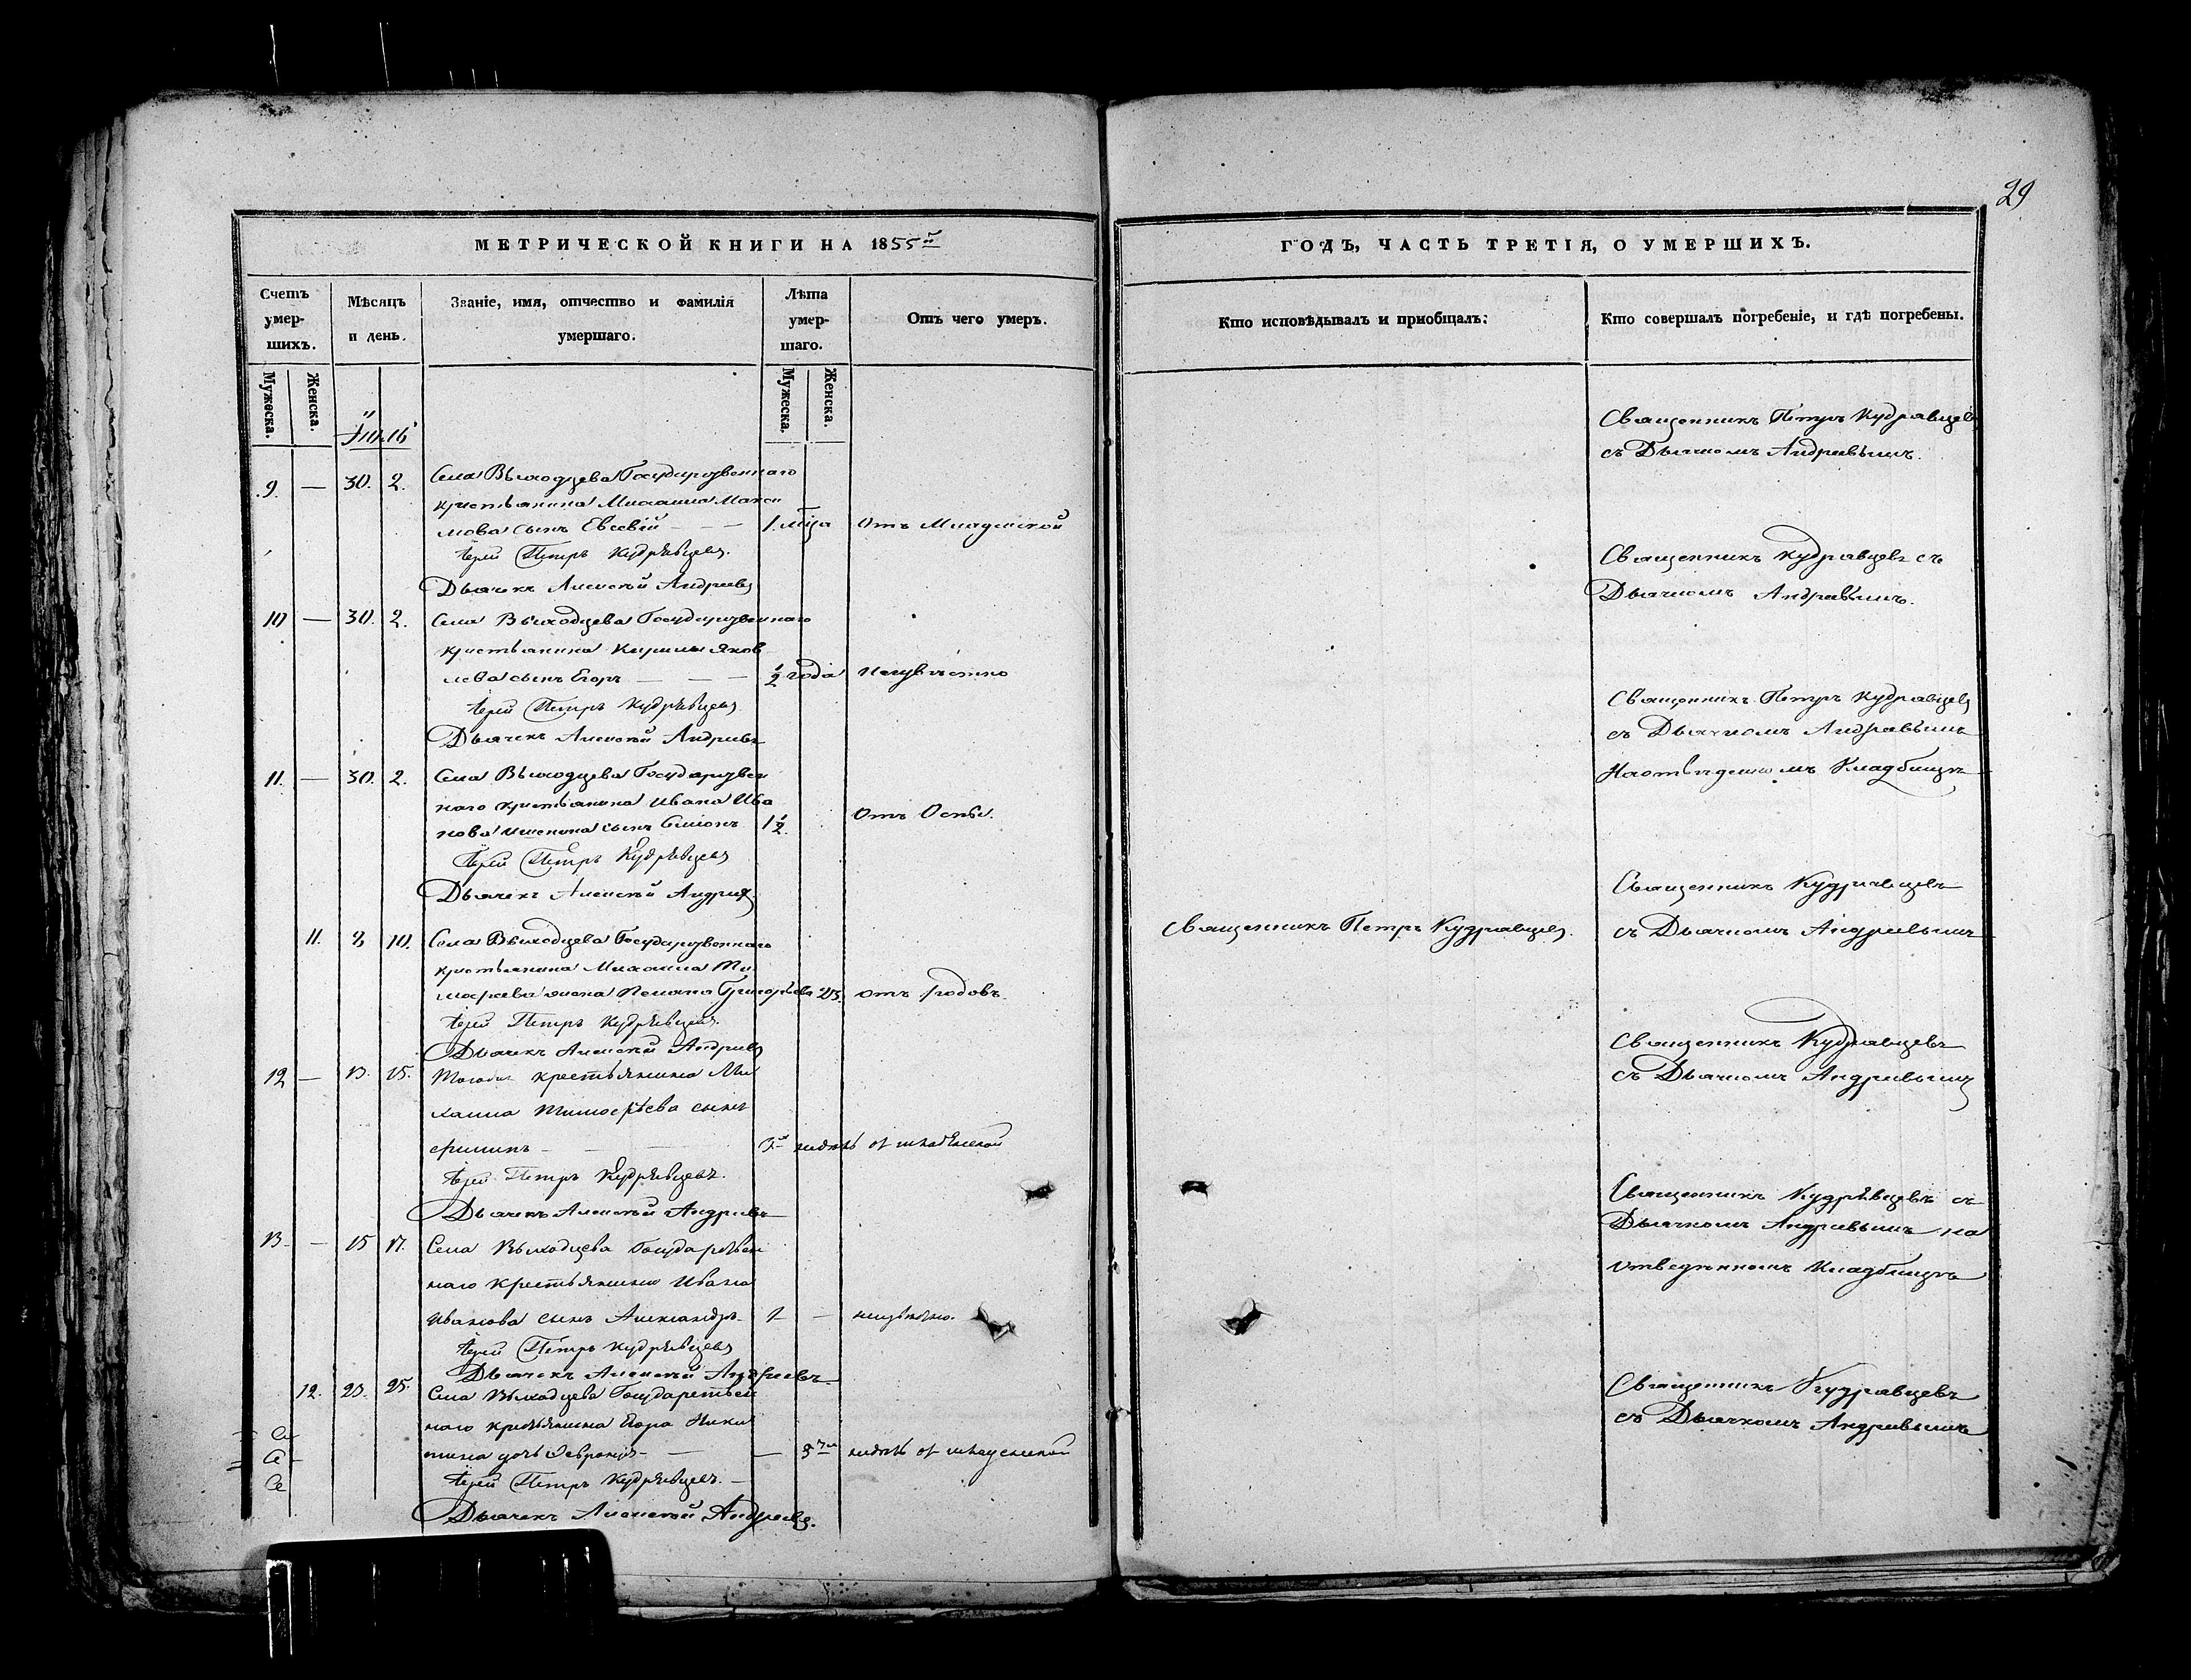 29
МЕТРИЧЕСКОЙ КНИГИ НА 1855й
Счетъ умер-шихъ.
Мѣсяцъ и день.
Званіе, имя, отчество и фамилія умершаго.
Лѣта умер-шаго.
Отъ чего умеръ.
Мужеска.
Женска.
Мужеска.
Женска.
9. — 30. 2. Села Выходцева Государственнаго
крестьянина Михаила Макси
мова сынъ Евсевій — — — 1. мца Отъ Младенской
Іерей Петръ Кудрявцевъ.
Дьячекъ Алексѣй Андреевъ
10 — 30. 2. Села Выходцева Государственнаго
крестьянина Кирилы Яков
лева сынъ Егоръ — — — ½ года Неизвѣстно
Іерей Петръ Кудрявцевъ
Дьячекъ Алексѣй Андреевъ
11. — 30. 2. Села Выходцева Государствен
наго крестьянина Ивана Ива
нова сынъ Симіонъ 1½. Отъ Оспы.
Іерей Петръ Кудрявцевъ
Дьячекъ Алексѣй Андреевъ
11. 8 10. Села Выходцева Государственнаго
крестьянина Михаила Ти
жена Григорьева 23. отъ родовъ.
Іерей Петръ Кудрявцевъ.
Дьячекъ Алексѣй Андреевъ
12 — 13. 15. крестьянина Ми
хаила Тимофѣева сынъ
недѣль от младенской
Іерей Петръ Кудрявцевъ.
Дьячекъ Алексѣй Андреевъ
13 — 15 17. Села Выходцева Государствен
наго крестьянина Ивана
Иванова сынъ Александръ 1 — неизвѣстно.
Іерей Петръ Кудрявцевъ
Дьячекъ Алексѣй Андреевъ
12. 23. 25. Села Выходцева Государствен
наго крестьянина Егора Ники
тина дочь — — недѣль от младенской
Іерей Петръ Кудрявцевъ. —
Дьячекъ Алексѣй Андреевъ.
ГОДЪ, ЧАСТЬ ТРЕТІЯ, О УМЕРШИХЪ.
Кто исповѣдывалъ и пріобщалъ:
Кто совершалъ погребеніе, и гдѣ погребены.
Священникъ Петръ Кудрявцевъ
съ Дьячкомъ Андреевымъ.
Священникъ Кудрявцевъ съ
Дьячкомъ Андреевымъ.
Священникъ Петръ Кудрявцевъ
съ Дьячкомъ Андреевымъ
На отведенномъ Кладбищѣ
Священникъ Петръ Кудрявцевъ.
Священникъ Кудрявцевъ
съ Дьячкомъ Андреевымъ
Священникъ Кудрявцевъ
съ Дьячкомъ Андреевымъ
Священникъ Кудрявцевъ съ
Дьячкомъ Андреевымъ на
отведенномъ Кладбищѣ
Священникъ Кудрявцевъ
съ Дьячкомъ Андреевымъ